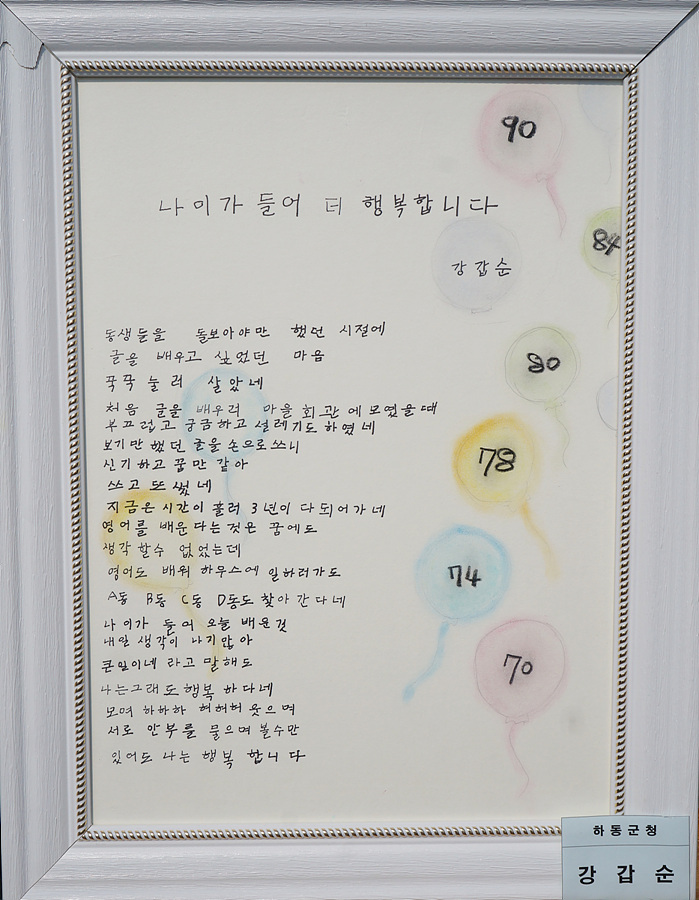 90
나이가 들어 더 행복합니다
84
강갑순
80
동생들을 돌보아야만 했던 시절에
글을 배우고 싶었던 마음
꾹꾹 눌러 살았네
처음 글을 배우려 마을회관에 모였을때
부끄럽고 궁금하고 설레기도 하였네
보기만 했던 글을 손으로 쓰니
신기하고 꿈만 같아
쓰고 또 썼네
지금은 시간이 흘러 3년이 다 되어가네
영어를 배운다는것은 꿈에도
생각 할수 없었는데
영어도 배워 하우스에 일하러가도
A동 B동 C동 D동도 찾아 간다네
나이가 들어 오늘 배운것
내일 생각이 나지않아
큰일이네 라고 말해도
나는그래도 행복 하다네
모여 하하하 허허허 웃으며
서로 안부를 물으며 볼수만
있어도 나는 행복 합니다
78
74
70
하동군청
강갑순